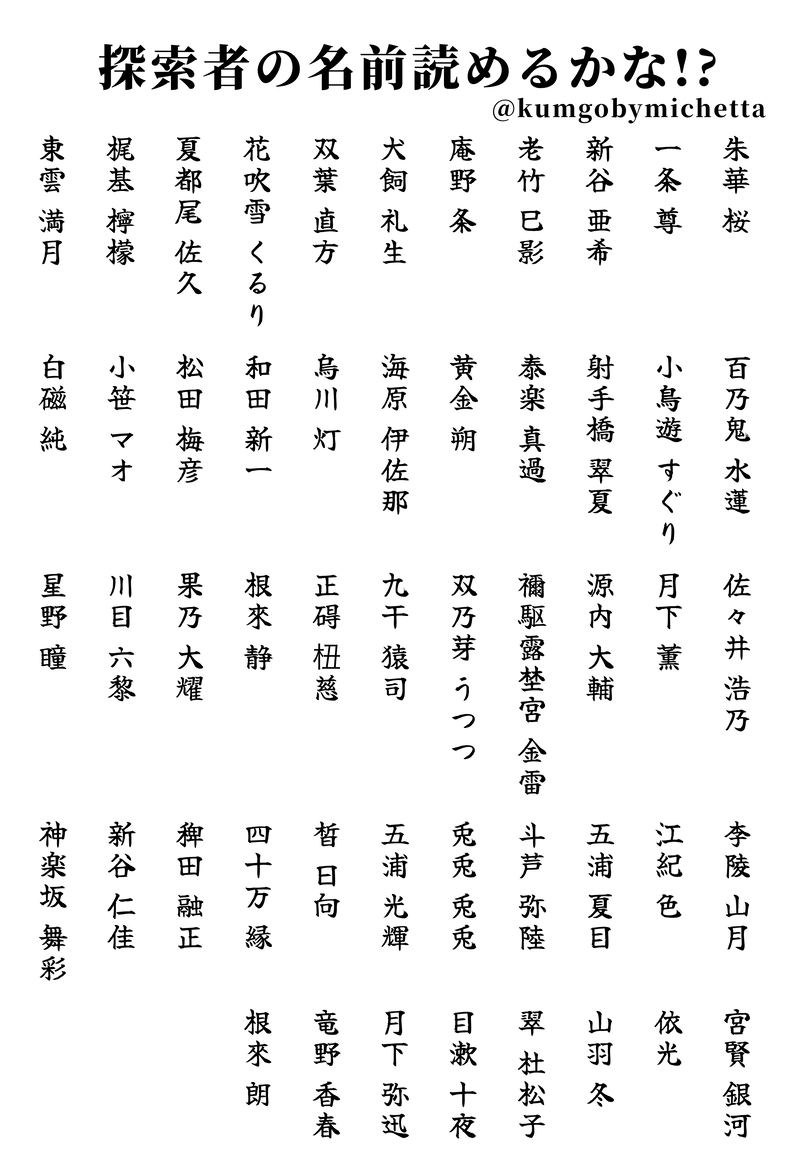 探索者の名前読めるかな!?
@kumgobymichetta
朱華 桜
一条 尊
新谷 亜希
老竹 巳影
庵野 条
犬飼 礼生
双葉 直方
花吹雪 くるり
夏都尾 佐久
梶基 檸檬
東雲 満月
百乃鬼 水蓮
小鳥遊 すぐり
射手橋 翠夏
泰楽 真過
黄金 朔
海原 伊佐那
烏川 灯
和田 新一
松田 梅彦
小笹 マオ
白磁 純
佐々井 浩乃
月下 薫
源内 大輔
禰駆露埜宮 金雷
双乃芽 うつつ
九十 猿司
正碍 杻慈
根來 静
果乃 大耀
川目 六黎
星野 瞳
李陵 山月
江紀 色
五浦 夏目
斗芦 弥陸
兎兎 兎兎
五浦 光輝
皙 日向
四十万 縁
稗田 融正
新谷 仁佳
神楽坂 舞彩
宮賢 銀河
依光
山羽 冬
翠 杜松子
目漱 十夜
月下 弥迅
竜野 香春
根來 朗